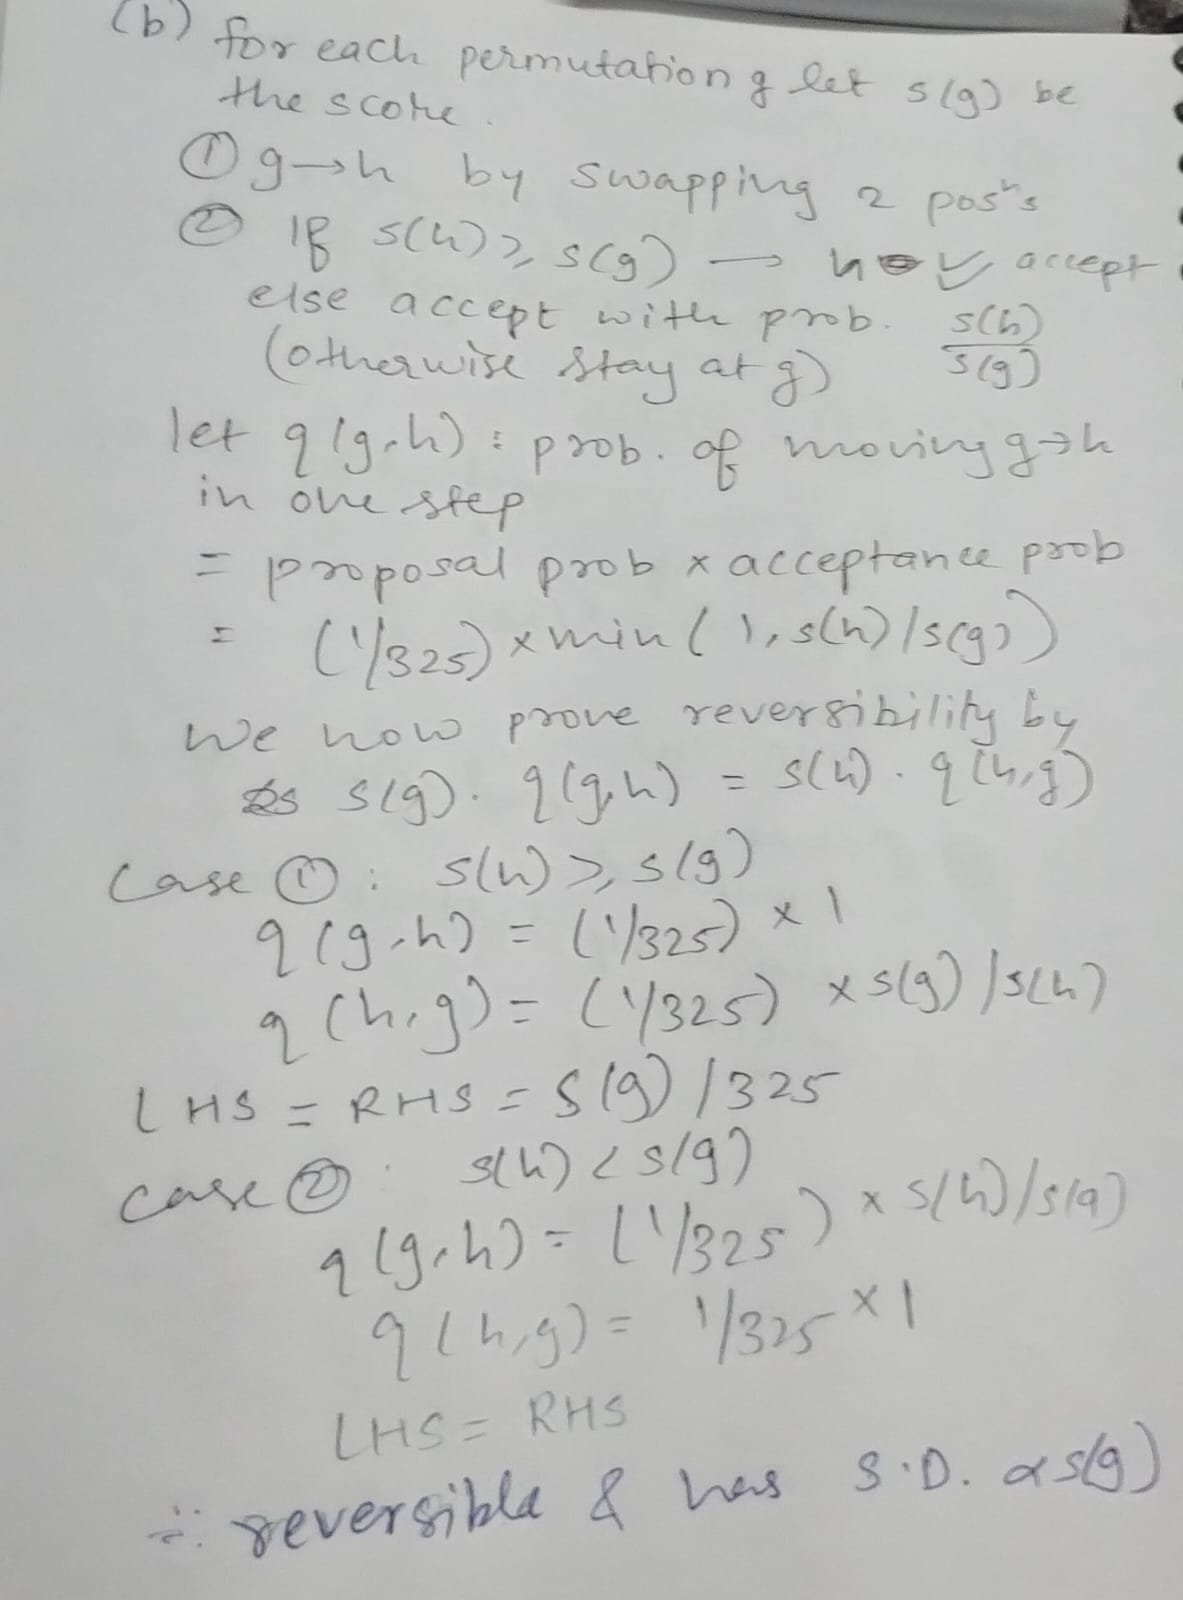 (b) for each permutation g let s(g) be
the score.
① g→h by swapping 2 posⁿs
② If s(h) ≥ s(g) → accept
else accept with prob. s(h)/s(g)
(otherwise stay at g)
let q(g,h) : prob. of moving g→h
in one step
= proposal prob x acceptance prob
= (1/325) x min(1, s(h)/s(g))
we now prove reversibility by
s(g). q(g,h) = s(h). q(h,g)
Case ① : s(h) ≥ s(g)
q(g,h) = (1/325) x 1
q(h,g) = (1/325) x s(g)/s(h)
LHS = RHS = S(g)/325
case ② : s(h) < s(g)
q(g,h) = (1/325) x s(h)/s(g)
q(h,g) = 1/325 x 1
LHS = RHS
∴ reversible & has S.D. α s(g)